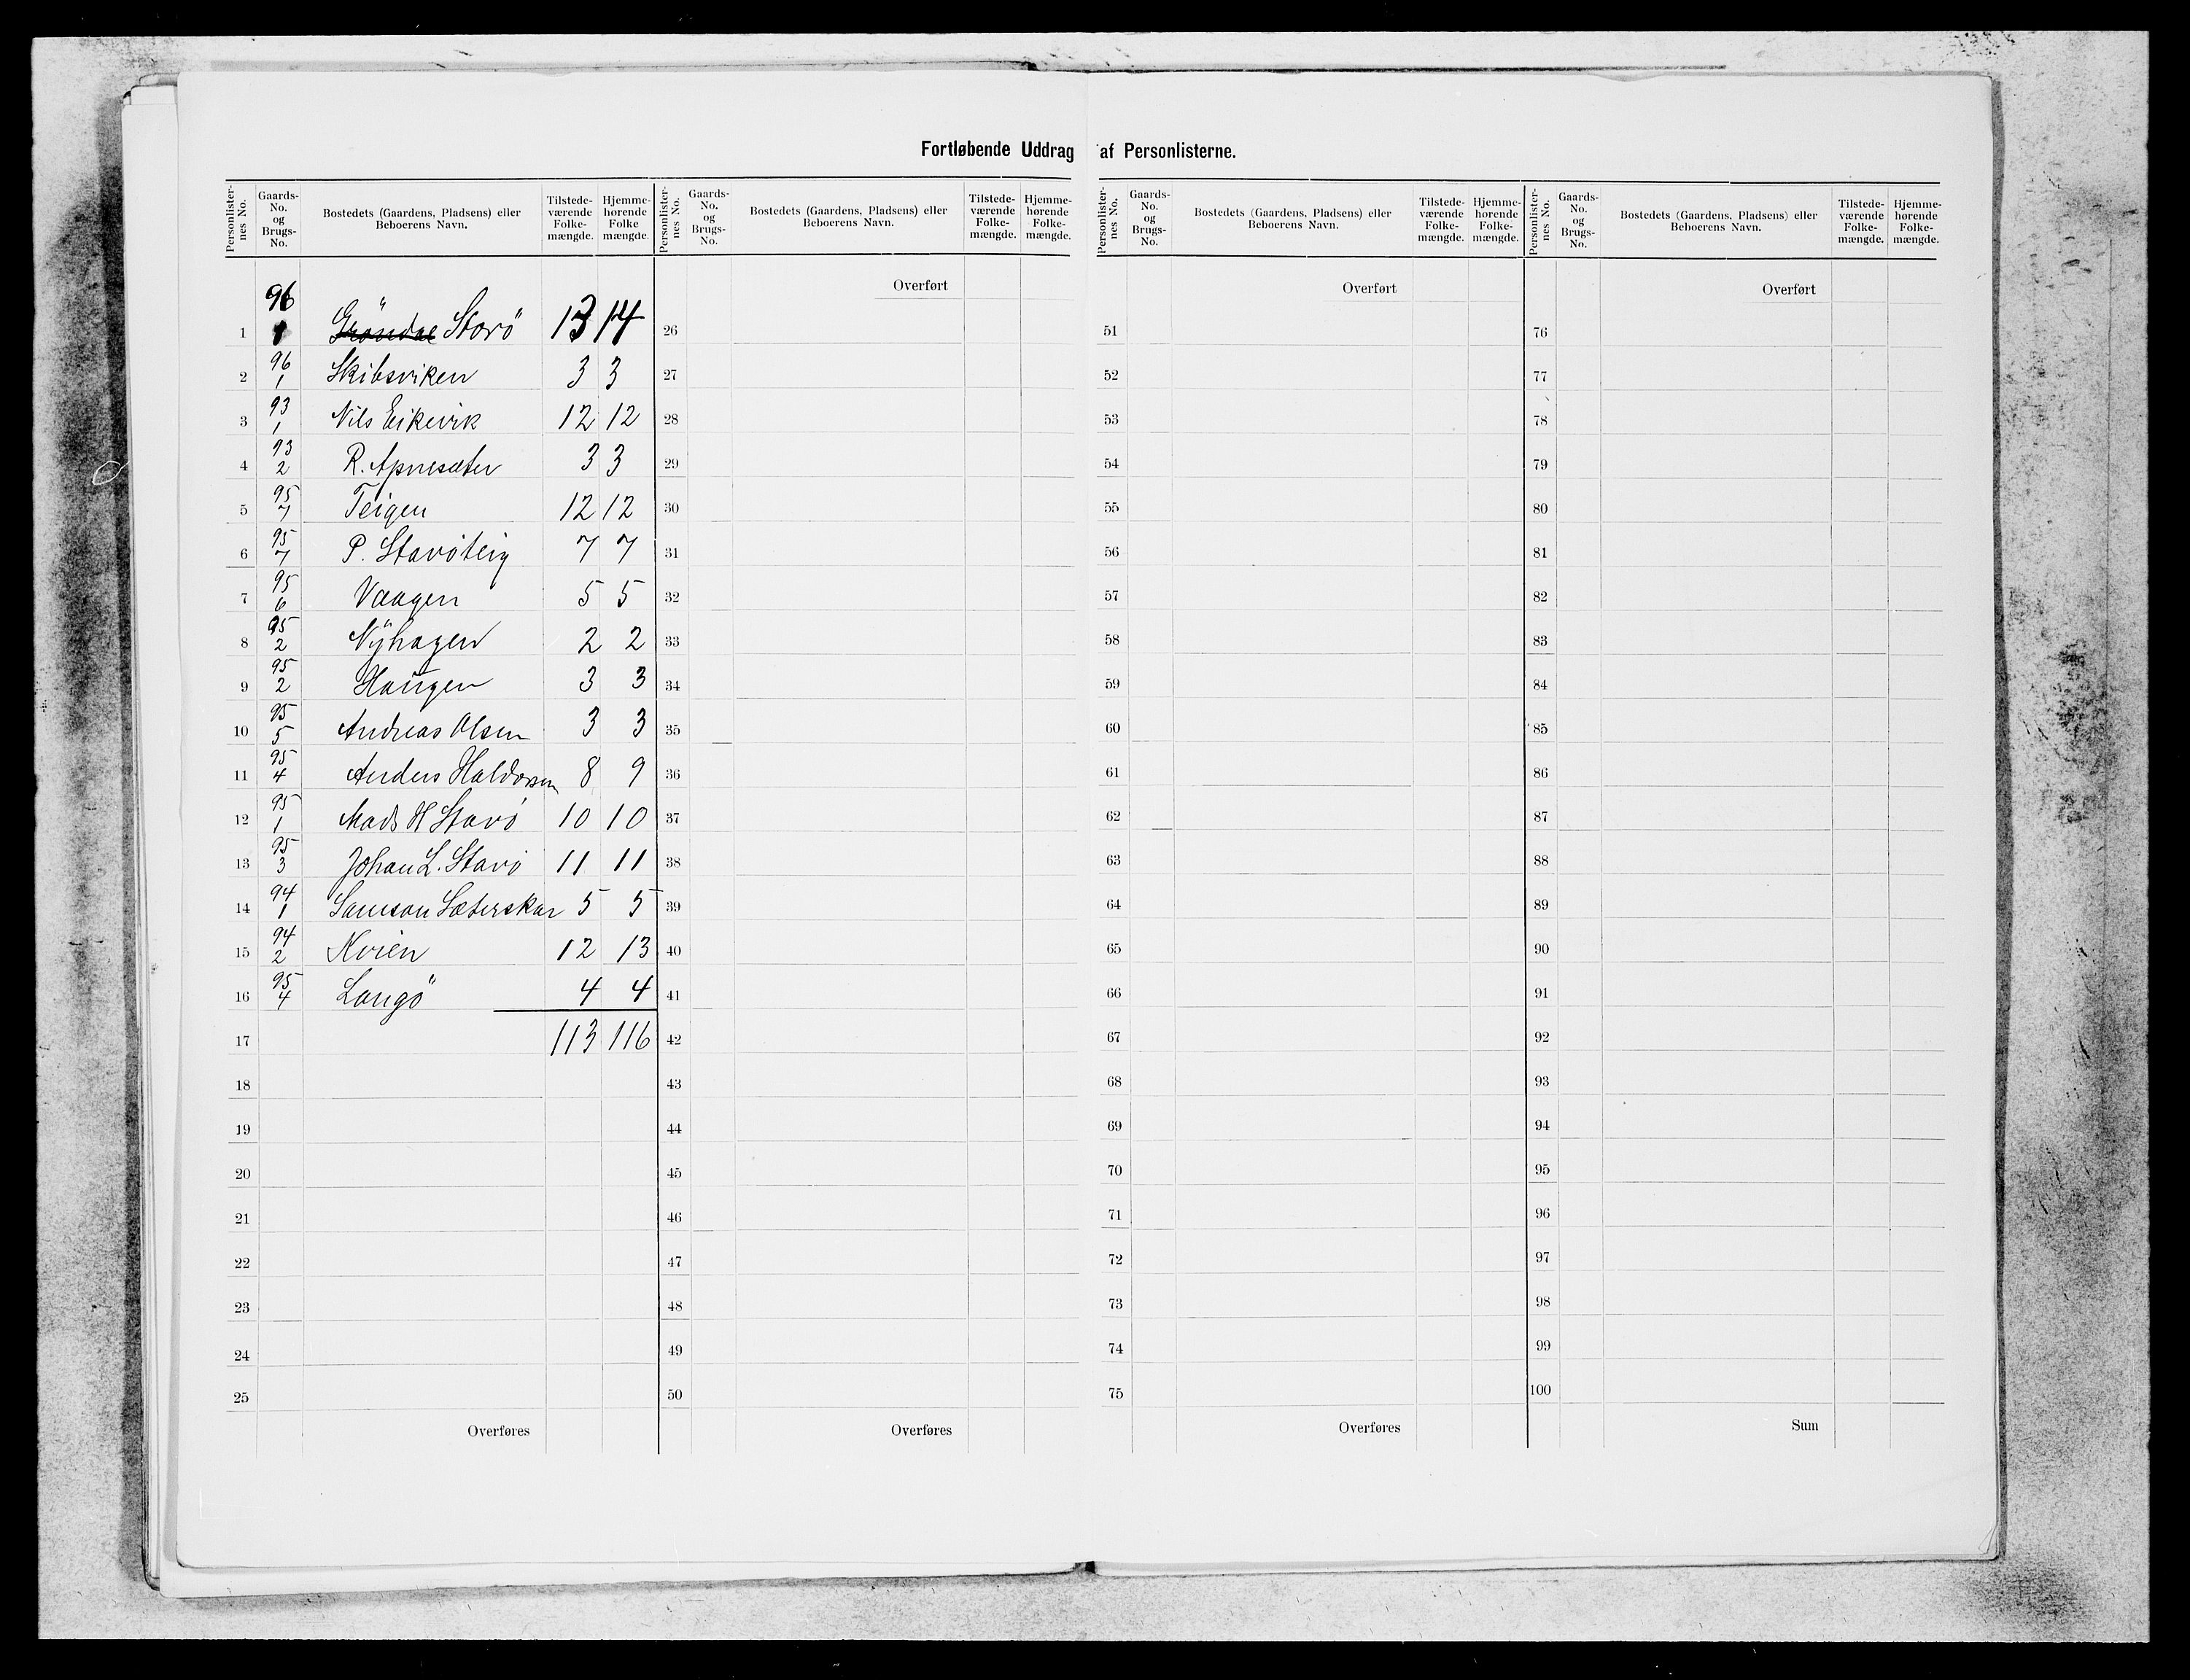 Fortløbende Uddrag af Personlisterne.
Personlister-nes No. Gaards-No. og Brugs-No. Bostedets (Gaardens, Pladsens) eller Beboerens Navn. Tilstede-værende Folke-mængde. Hjemme-hørende Folke mængde.
1 96 1 Gröndal Storö 13 14
2 96 1 Skibsviken 3 3
3 93 1 Nils Eikevik 12 12
4 93 2 R. Apnesæter 3 3
5 95 7 Teigen 12 12
6 95 7 P. Stavöteig 7 7
7 95 6 Vaagen 5 5
8 95 2 Nÿhagen 2 2
9 95 2 Haugen 3 3
10 95 5 Andreas Olsen 3 3
11 95 4 Anders Haldorsen 8 9
12 95 1 Mads H Stavö 10 10
13 95 3 Johan L. Stavö 11 11
14 94 1 Samson Sæterskar 5 5
15 94 2 Kvien 12 13
16 95 4 Langö 4 4
17 113 116
18
19
20
21
22
23
24
25
Overføres
Personlister-nes No. Gaards-No. og Brugs-No. Bostedets (Gaardens, Pladsens) eller Beboerens Navn. Tilstede-værende Folke-mængde. Hjemme-hørende Folke-mængde.
Overført
26
27
28
29
30
31
32
33
34
35
36
37
38
39
40
41
42
43
44
45
46
47
48
49
50
Overføres
Personlister-nes No. Gaards-No. og Brugs-No. Bostedets (Gaardens, Pladsens) eller Beboerens Navn. Tilstede-værende Folke-mængde. Hjemme-hørende Folke-mængde.
Overført
51
52
53
54
55
56
57
58
59
60
61
62
63
64
65
66
67
68
69
70
71
72
73
74
75
Overføres
Personlister-nes No. Gaards-No. og Brugs-No. Bostedets (Gaardens, Pladsens) eller Beboerens Navn. Tilstede-værende Folke-mængde. Hjemme-hørende Folke-mængde.
Overført
76
77
78
79
80
81
82
83
84
85
86
87
88
89
90
91
92
93
94
95
96
97
98
99
100
Sum